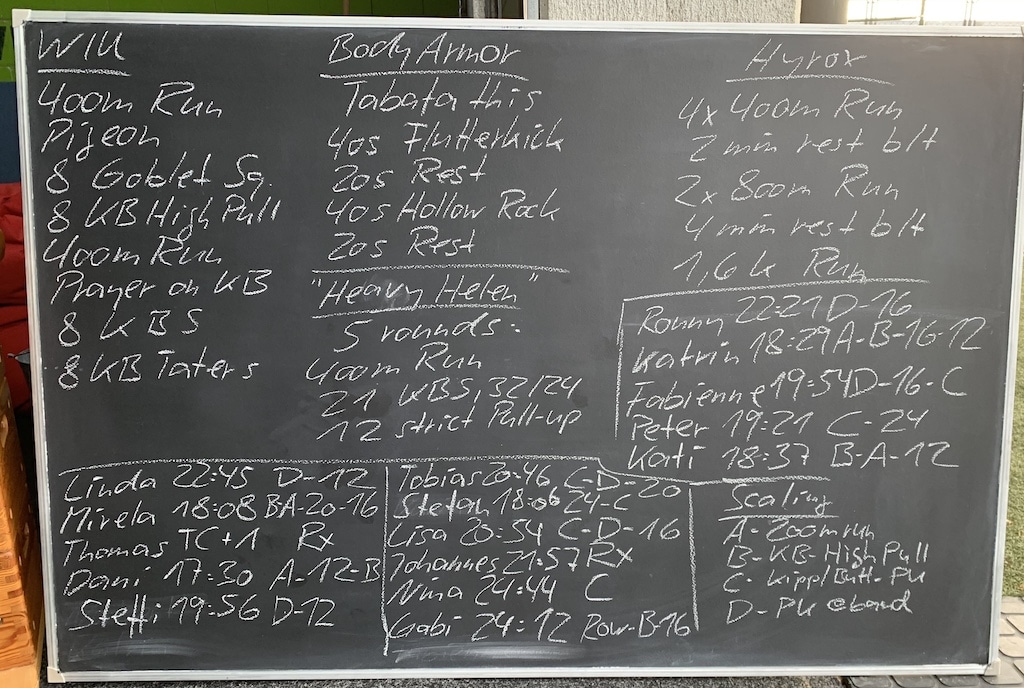 WU
400m Run
Pigeon
8 Goblet Sq.
8 KB High Pull
400m Run
Prayer on KB
8 KBS
8 KB Taters
Body Armor
Tabata this
40s Flutterkick
20s Rest
40s Hollow Rock
20s Rest
"Heavy Helen"
5 rounds:
400m Run
21 KBS, 32/24
12 strict Pull-up
Hyrox
4x 400m Run
2 min rest b/t
2x 800m Run
4 min rest b/t
1,6k Run
Ronny 22:21 D-16
Katrin 18:29 A-B-16-12
Fabienne 19:54 D-16-C
Peter 19:21 C-24
Kati 18:37 B-A-12
Linda 22:45 D-12
Mirela 18:08 BA-20-16
Thomas TC+1 Rx
Dani 17:30 A-12-B
Steffi 19:56 D-12
Tobias 20:46 C-D-20
Stefan 18:06 24-C
Lisa 20:54 C-D-16
Johannes 21:57 Rx
Nina 24:44 C
Gabi 24:12 Row-B-16
Scaling
A- 200m run
B- KB High Pull
C- Kipp/Butt-PU
D- PU @band